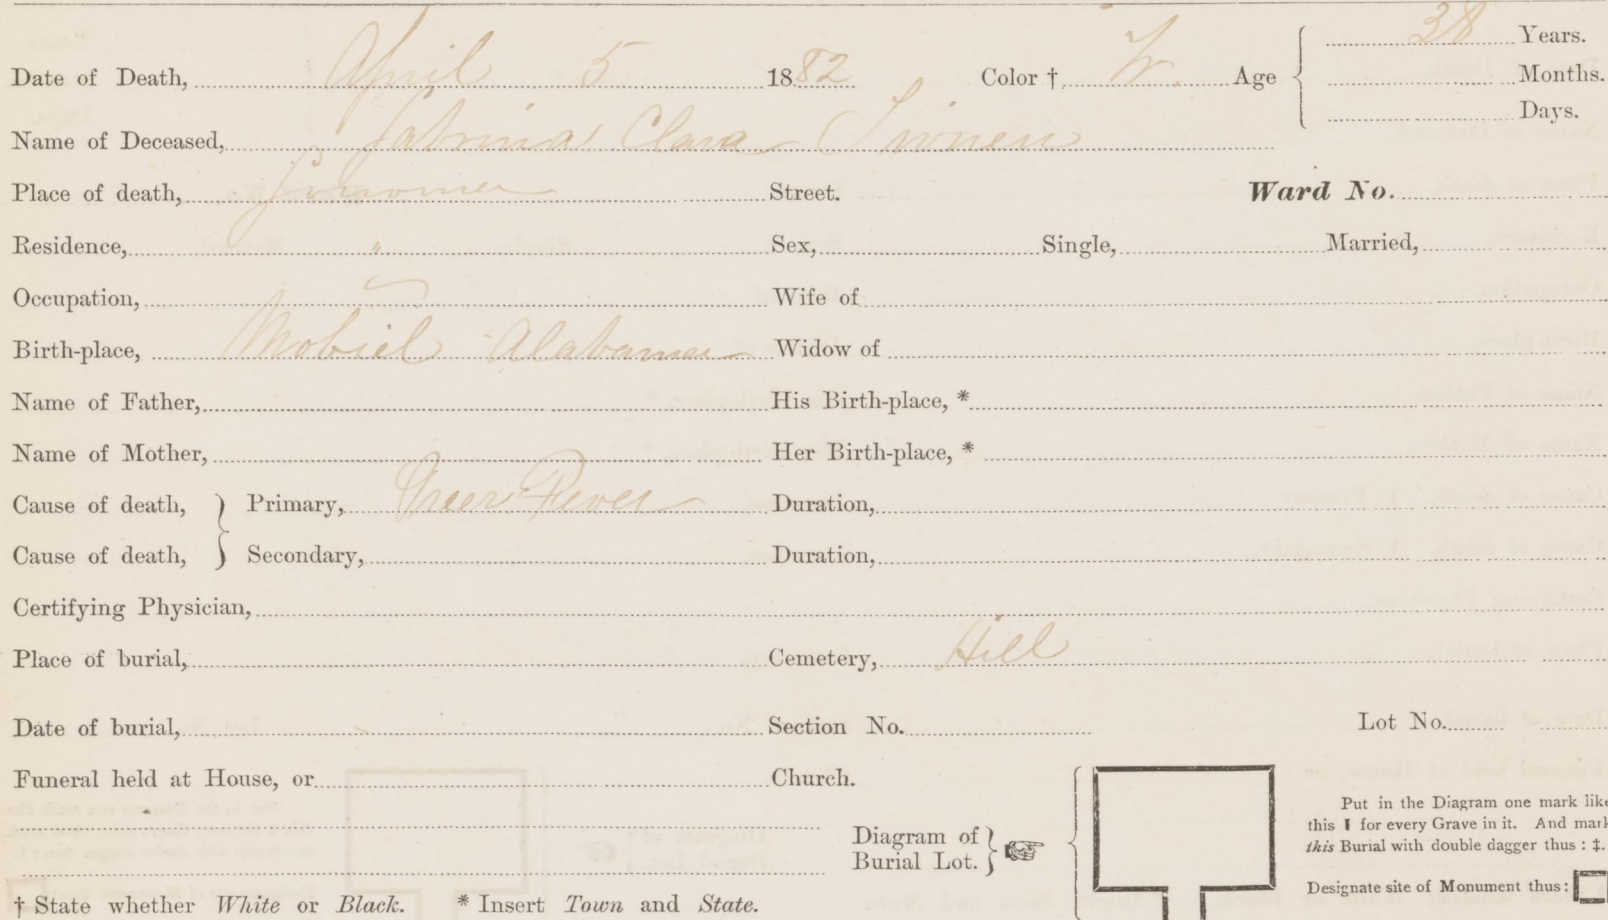 38 Years.
Date of Death, April 5 1882 Color †, W. Age Months.
Days.
Name of Deceased, Sabrina Clara
Place of death, Sonoma Street. Ward No.
Residence, " Sex, Single, Married,
Occupation, Wife of
Birth-place, Mobiel Alabama Widow of
Name of Father, His Birth-place, *
Name of Mother, Her Birth-place, *
Cause of death, } Primary, Fever Duration,
Cause of death, } Secondary, Duration,
Certifying Physician,
Place of burial, Cemetery, Hill
Date of burial, Section No. Lot No.
Funeral held at House, or Church.
Put in the Diagram one mark like
this ▮ for every Grave in it. And mark
this Burial with double dagger thus : ‡.
Diagram of
Burial Lot.
Designate site of Monument thus :
† State whether White or Black. * Insert Town and State.